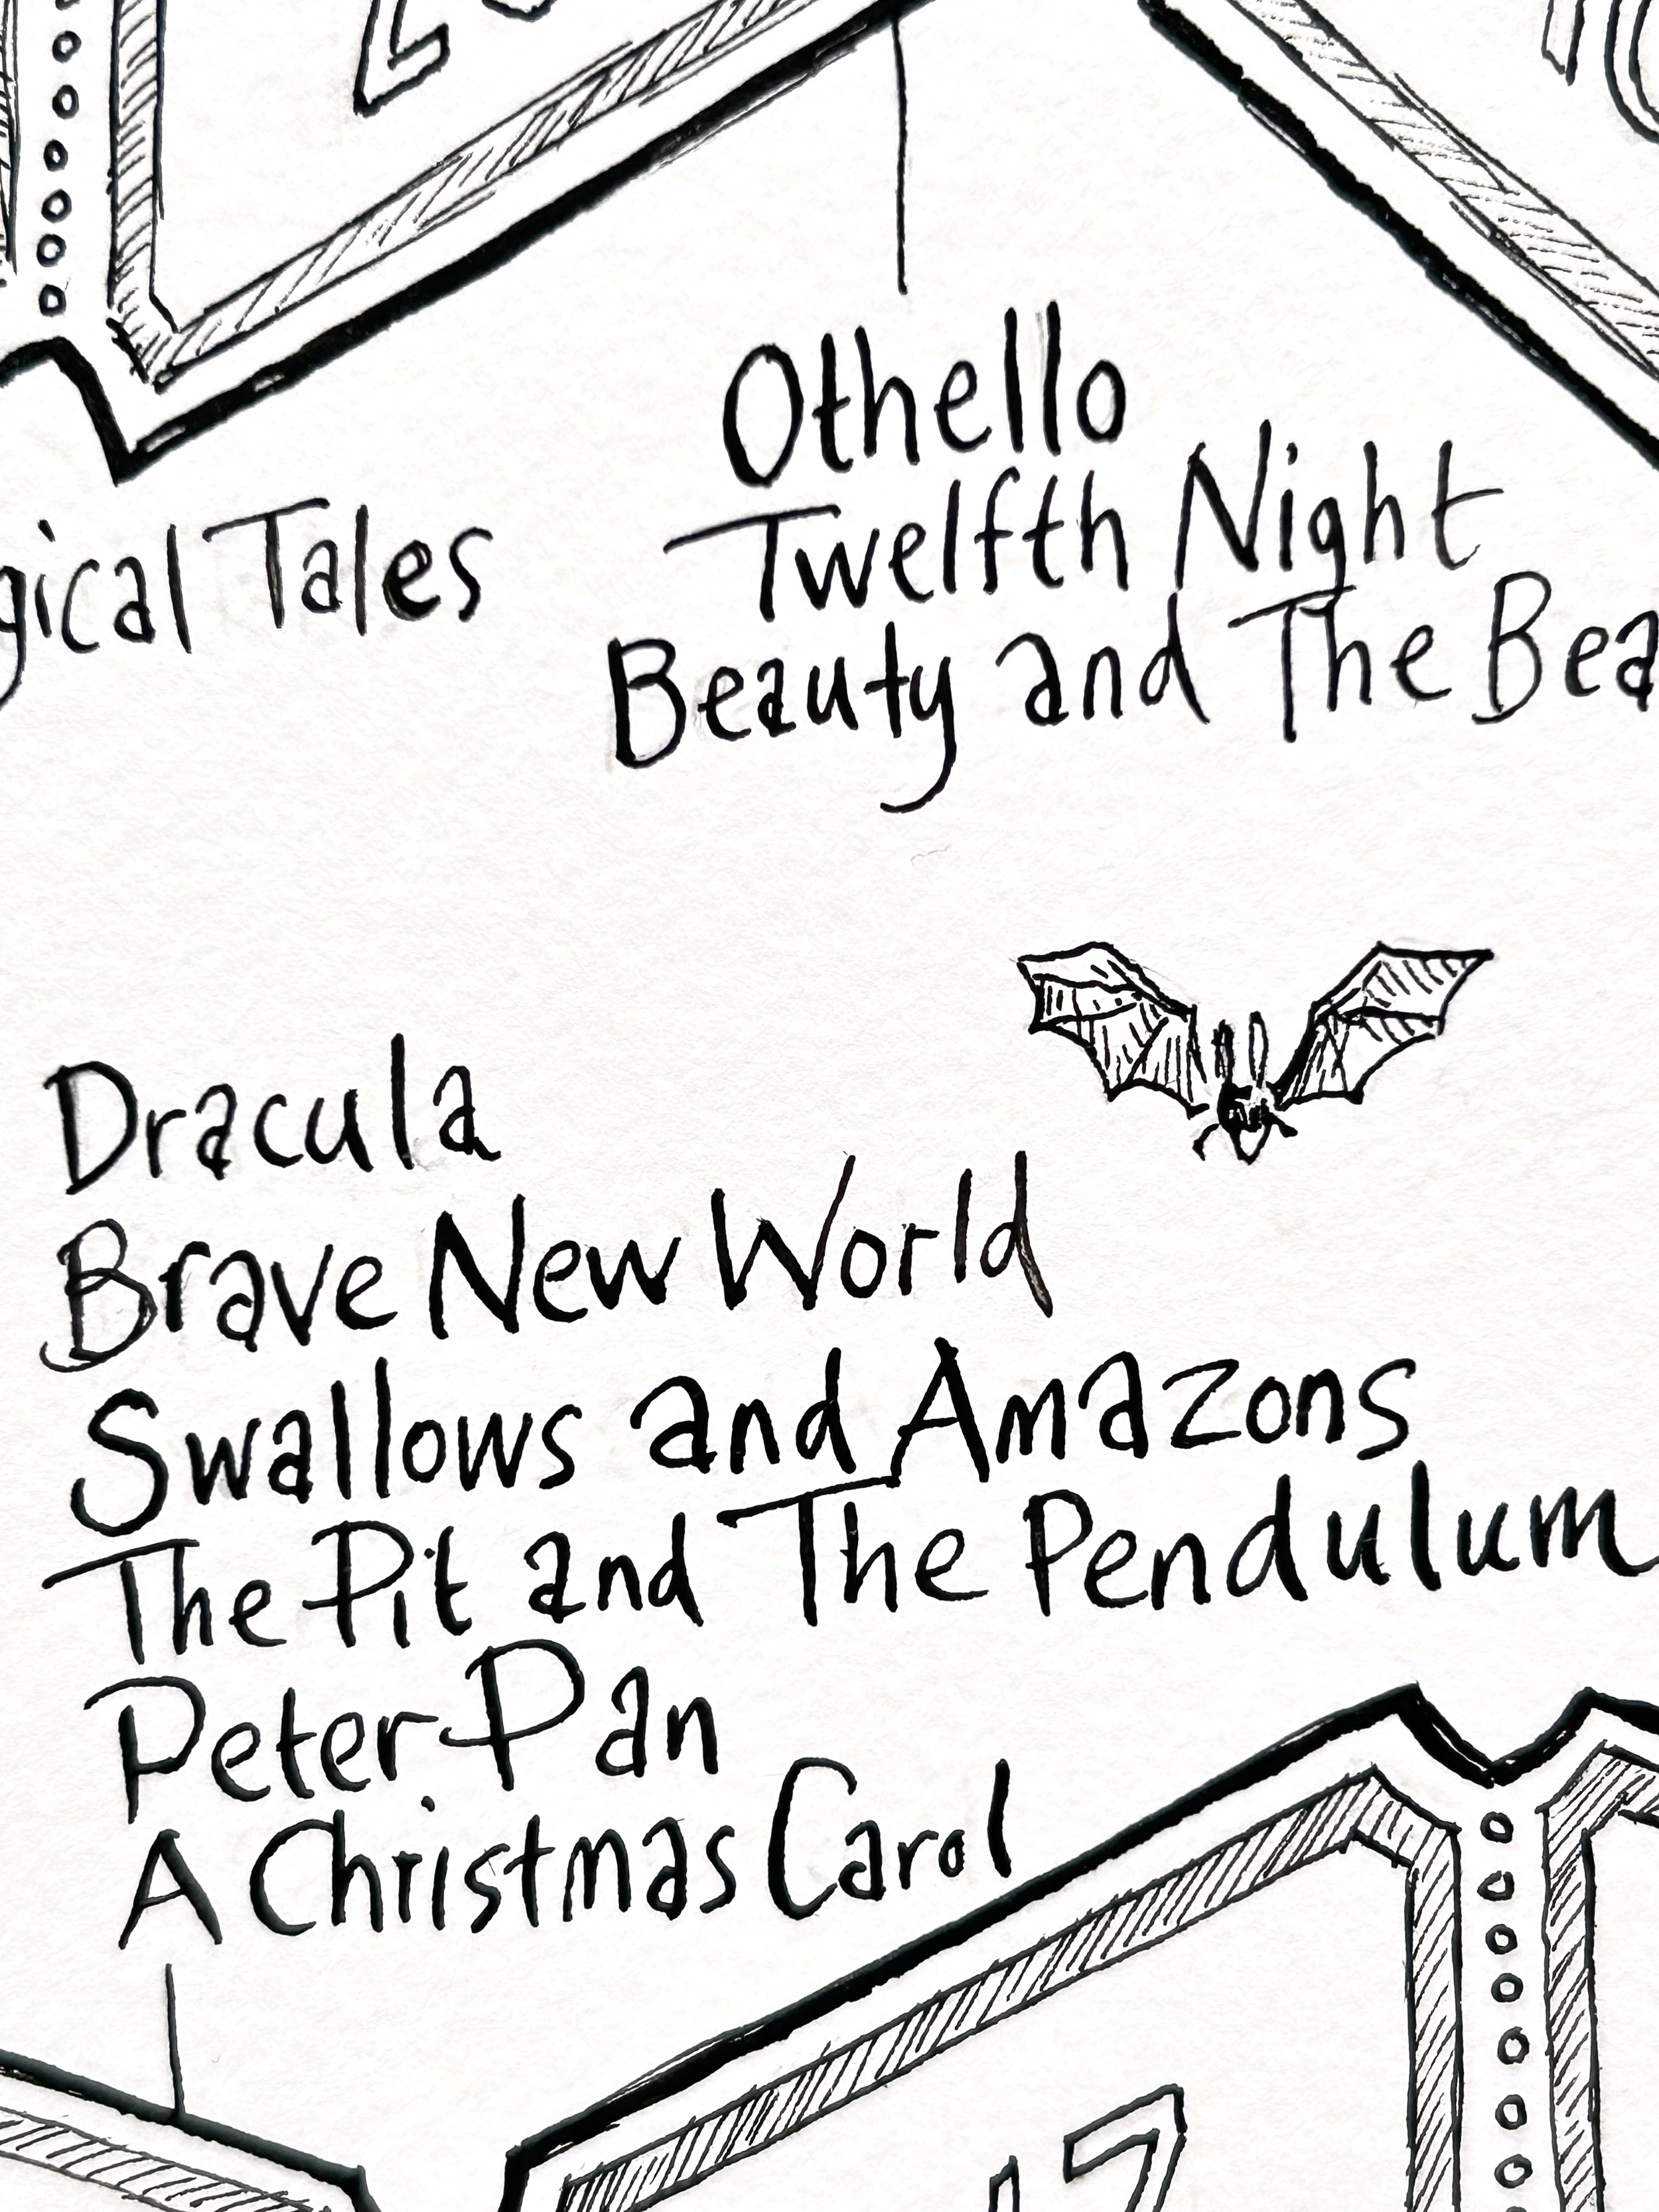 Othello
Twelfth Night
Beauty and The
Tales
Dracula
Brave New World
Swallows and Amazons
The Pit and The Pendulum
Peter Pan
A Christmas Carol
17